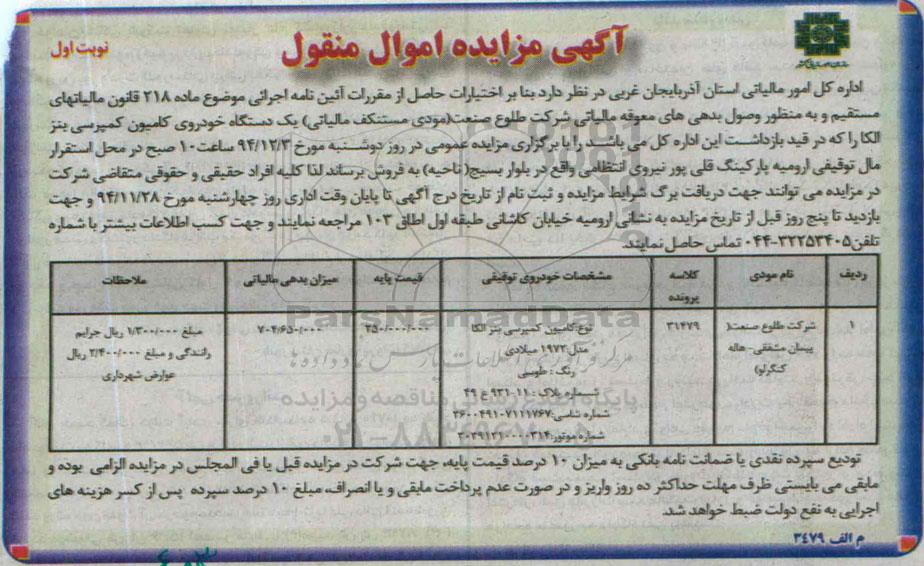 آگهی مزایده اموال منقول
نوبت اول
اداره کل امور مالیاتی استان آذربایجان غربی در نظر دارد بنا بر اختیارات حاصل از مقررات آئین نامه اجرائی موضوع ماده ۲۱۸ قانون مالیاتهای
مستقیم و به منظور وصول بدهی های معوقه مالیاتی شرکت طلوع صنعت(مودی مستنکف مالیاتی) یک دستگاه خودروی کامیون کمپرسی بنز
الکا را که در قید بازداشت این اداره کل می باشد را با برگزاری مزایده عمومی در روز دوشنبه مورخ ۹۴/۱۲/۳ ساعت۱۰ صبح در محل استقرار
مال توقیفی ارومیه پارکینگ قلی پور نیروی انتظامی واقع در بلوار بسیج(ناحیه) به فروش برساند لذا کلیه افراد حقیقی و حقوقی متقاضی شرکت
در مزایده می توانند جهت دریافت برگ شرایط مزایده و ثبت نام از تاریخ درج آگهی تا پایان وقت اداری روز چهارشنبه مورخ ۹۴/۱۱/۲۸ و جهت
بازدید تا پنج روز قبل از تاریخ مزایده به نشانی ارومیه خیابان کاشانی طبقه اول اطاق ۱۰۳ مراجعه نمایند و جهت کسب اطلاعات بیشتر با شماره
تلفن۳۲۲۵۳۴۰۵-۰۴۴ تماس حاصل نمایند.
ردیف نام مودی کلاسه پرونده مشخصات خودروی توقیفی قیمت پایه میزان بدهی مالیاتی ملاحظات
۱ شرکت طلوع صنعت( ۳۱۴۷۹ نوع:کامیون کمپرسی بنز الکا ۳۵۰/۰۰۰/۰۰۰ ۷۰۴/۶۵۰/۰۰۰ مبلغ ۱/۳۰۰/۰۰۰ ریال جرایم
پیمان مشفقی-هاله مدل:۱۹۷۲ میلادی رانندگی و مبلغ ۲/۴۰۰/۰۰۰ ریال
کنگرلو) رنگ : طوسی عوارض شهرداری
شماره پلاک :۱۱-۹۳۱ ع ۴۹
شماره شاسی:۳۶۰۰۴۹۱۰۷۱۱۱۷۶۷
شماره موتور:۳۰۳۹۱۲۱۰۰۰۰۳۱۴
ParsNamadData
پایگاه اطلاع رسانی مناقصه و مزایده
تودیع سپرده نقدی یا ضمانت نامه بانکی به میزان ۱۰ درصد قیمت پایه، جهت شرکت در مزایده قبل یا فی المجلس در مزایده الزامی بوده و
مابقی می بایستی ظرف مهلت حداکثر ده روز واریز و در صورت عدم پرداخت مابقی و یا انصراف، مبلغ ۱۰ درصد سپرده پس از کسر هزینه های
اجرایی به نفع دولت ضبط خواهد شد.
م الف ۳۴۷۹